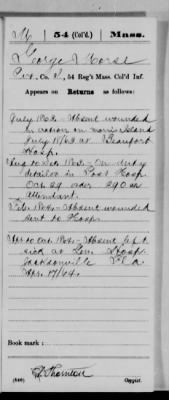 M | 54 (Col'd.) | Mass.
George Morse
Pvt., Co. D, 54 Reg't Mass. Col'd Inf.
Appears on
Returns as follows:
July 1863 - Absent wounded
in action on Morris Island
July 18/63 at Beaufort
Hosp.
Aug to Dec. 1863 - On duty
detailed in Post Hosp.
Oct. 29 order 290 as
attendant.
Feb. 1864 - Absent wounded
sent to Hosp.
Apr. to Oct. 1864 - Absent
sick at Gen. Hosp.
Jacksonville Fla.
Apr. 17/64.
Book mark :
(546)
Thornton
Copyist.